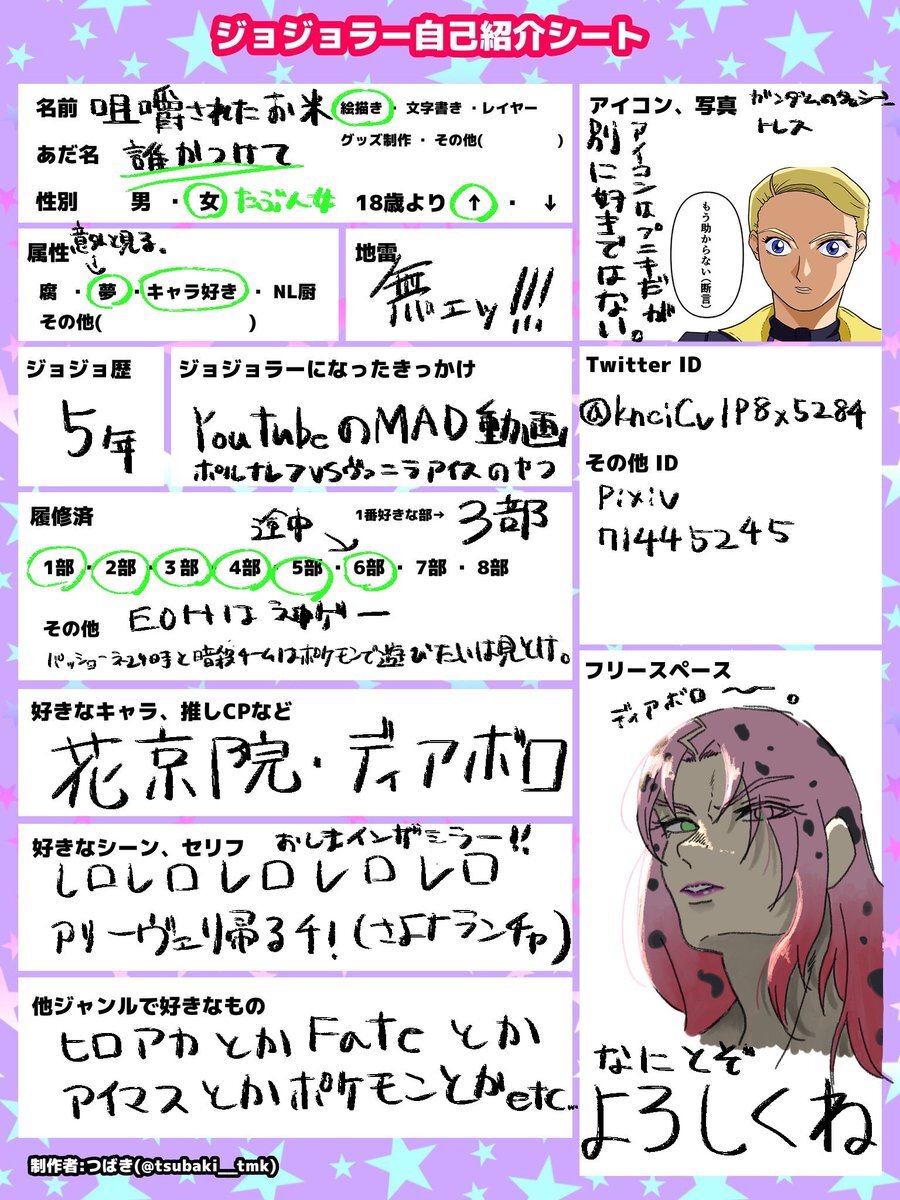 ジョジョラー自己紹介シート
名前 咀嚼されたお米
絵描き・文字書き・レイヤー
グッズ制作・その他( )
あだ名 誰かつけて
性別 男・女 たぶん女 18歳より ↑・↓
属性 意外と見る。
腐・夢・キャラ好き・NL厨
その他( )
地雷
無ェッ!!!
ジョジョ歴
5年
ジョジョラーになったきっかけ
YouTubeのMAD動画
ポルナレフVSヴァニラアイスのヤつ
履修済 途中 1番好きな部→ 3部
1部・2部・3部・4部・5部・6部・7部・8部
その他 EOHは神ゲー
と暗殺チームはポケモンで遊びたいは見とけ。
好きなキャラ、推しCPなど
花京院・ディアボロ
好きなシーン、セリフ おしまインザミラー!!
レロレロレロレロレロ
アリーヴェリ帰るチ!(さよナランチャ)
他ジャンルで好きなもの
ヒロアカとかFateとか
アイマスとかポケモンとかetc...
制作者:つばき(@tsubaki__tmk)
アイコン、写真 ガンダムの
トレス
アイコンはプニキだが
別に好きではない。
もう助からない(断言)
Twitter ID
@knciCv1P8x5284
その他 ID
Pixiv
71445245
フリースペース
ディアボロ〜〜。
なにとぞ
よろしくね